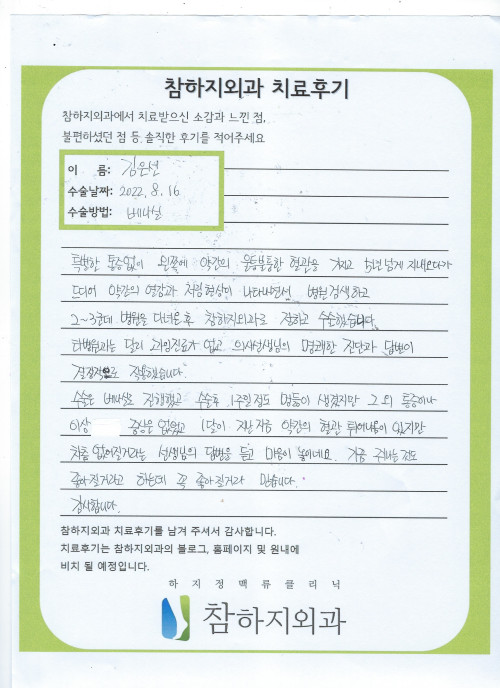 참하지외과 치료후기
참하지외과에서 치료받으신 소감과 느낀 점,
불편하셨던 점 등 솔직한 후기를 적어주세요
이 름: 김은선
수술날짜: 2022. 8. 16
수술방법: 베나실
특별한 통증없이 왼쪽에 약간의 울퉁불퉁한 혈관을 가지고 넘게 지내오다가
뜨디어 약간의 염증과 저림현상이 나타나면서 병원 검색하고
2~3군데 병원을 다녀온후 참하지외과로 정하고 수술했습니다.
타병원과는 달리 과잉진료가 없고 의사선생님의 명쾌한 진단과 답변이
결정적으로 작용했습니다.
수술은 베나실로 진행했고 수술후 1주일정도 멍들이 생겼지만 그 외 통증이나
이상 증상은 없었고 1달이 지난 지금 약간의 혈관 튀어나옴이 있지만
차츰 없어질거라는 선생님의 답변을 듣고 마음이 놓이네요. 지금
좋아질거라고 하는데 꼭 좋아질거라 믿습니다.
감사합니다.
참하지외과 치료후기를 남겨 주셔서 감사합니다.
치료후기는 참하지외과의 블로그, 홈페이지 및 원내에
비치 될 예정입니다.
하지정맥류클리닉
참하지외과